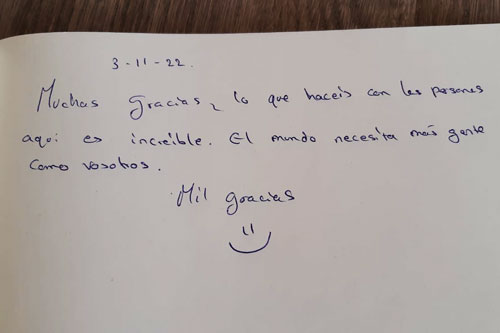 3-11-22.
Muchas gracias, lo que haceis con les persones
aquí es increíble. El mundo necesita más gente
como vosotros.
Mil gracias